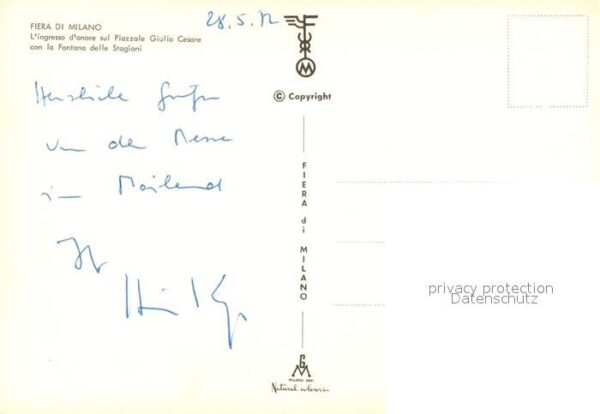 FIERA DI MILANO
L'ingresso d'onore sul Piazzale Giulio Cesare
con la Fontana delle Stagioni
28.5.72
Herzliche Grüße
von der Messe
in Mailand
Ihr
M
© Copyright
FIERA di MILANO
privacy protection
Datenschutz
GM
Natural colours